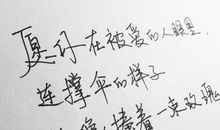 夏 在被爱的人眼里
连撑伞的样子
都像 捧着一束玫瑰